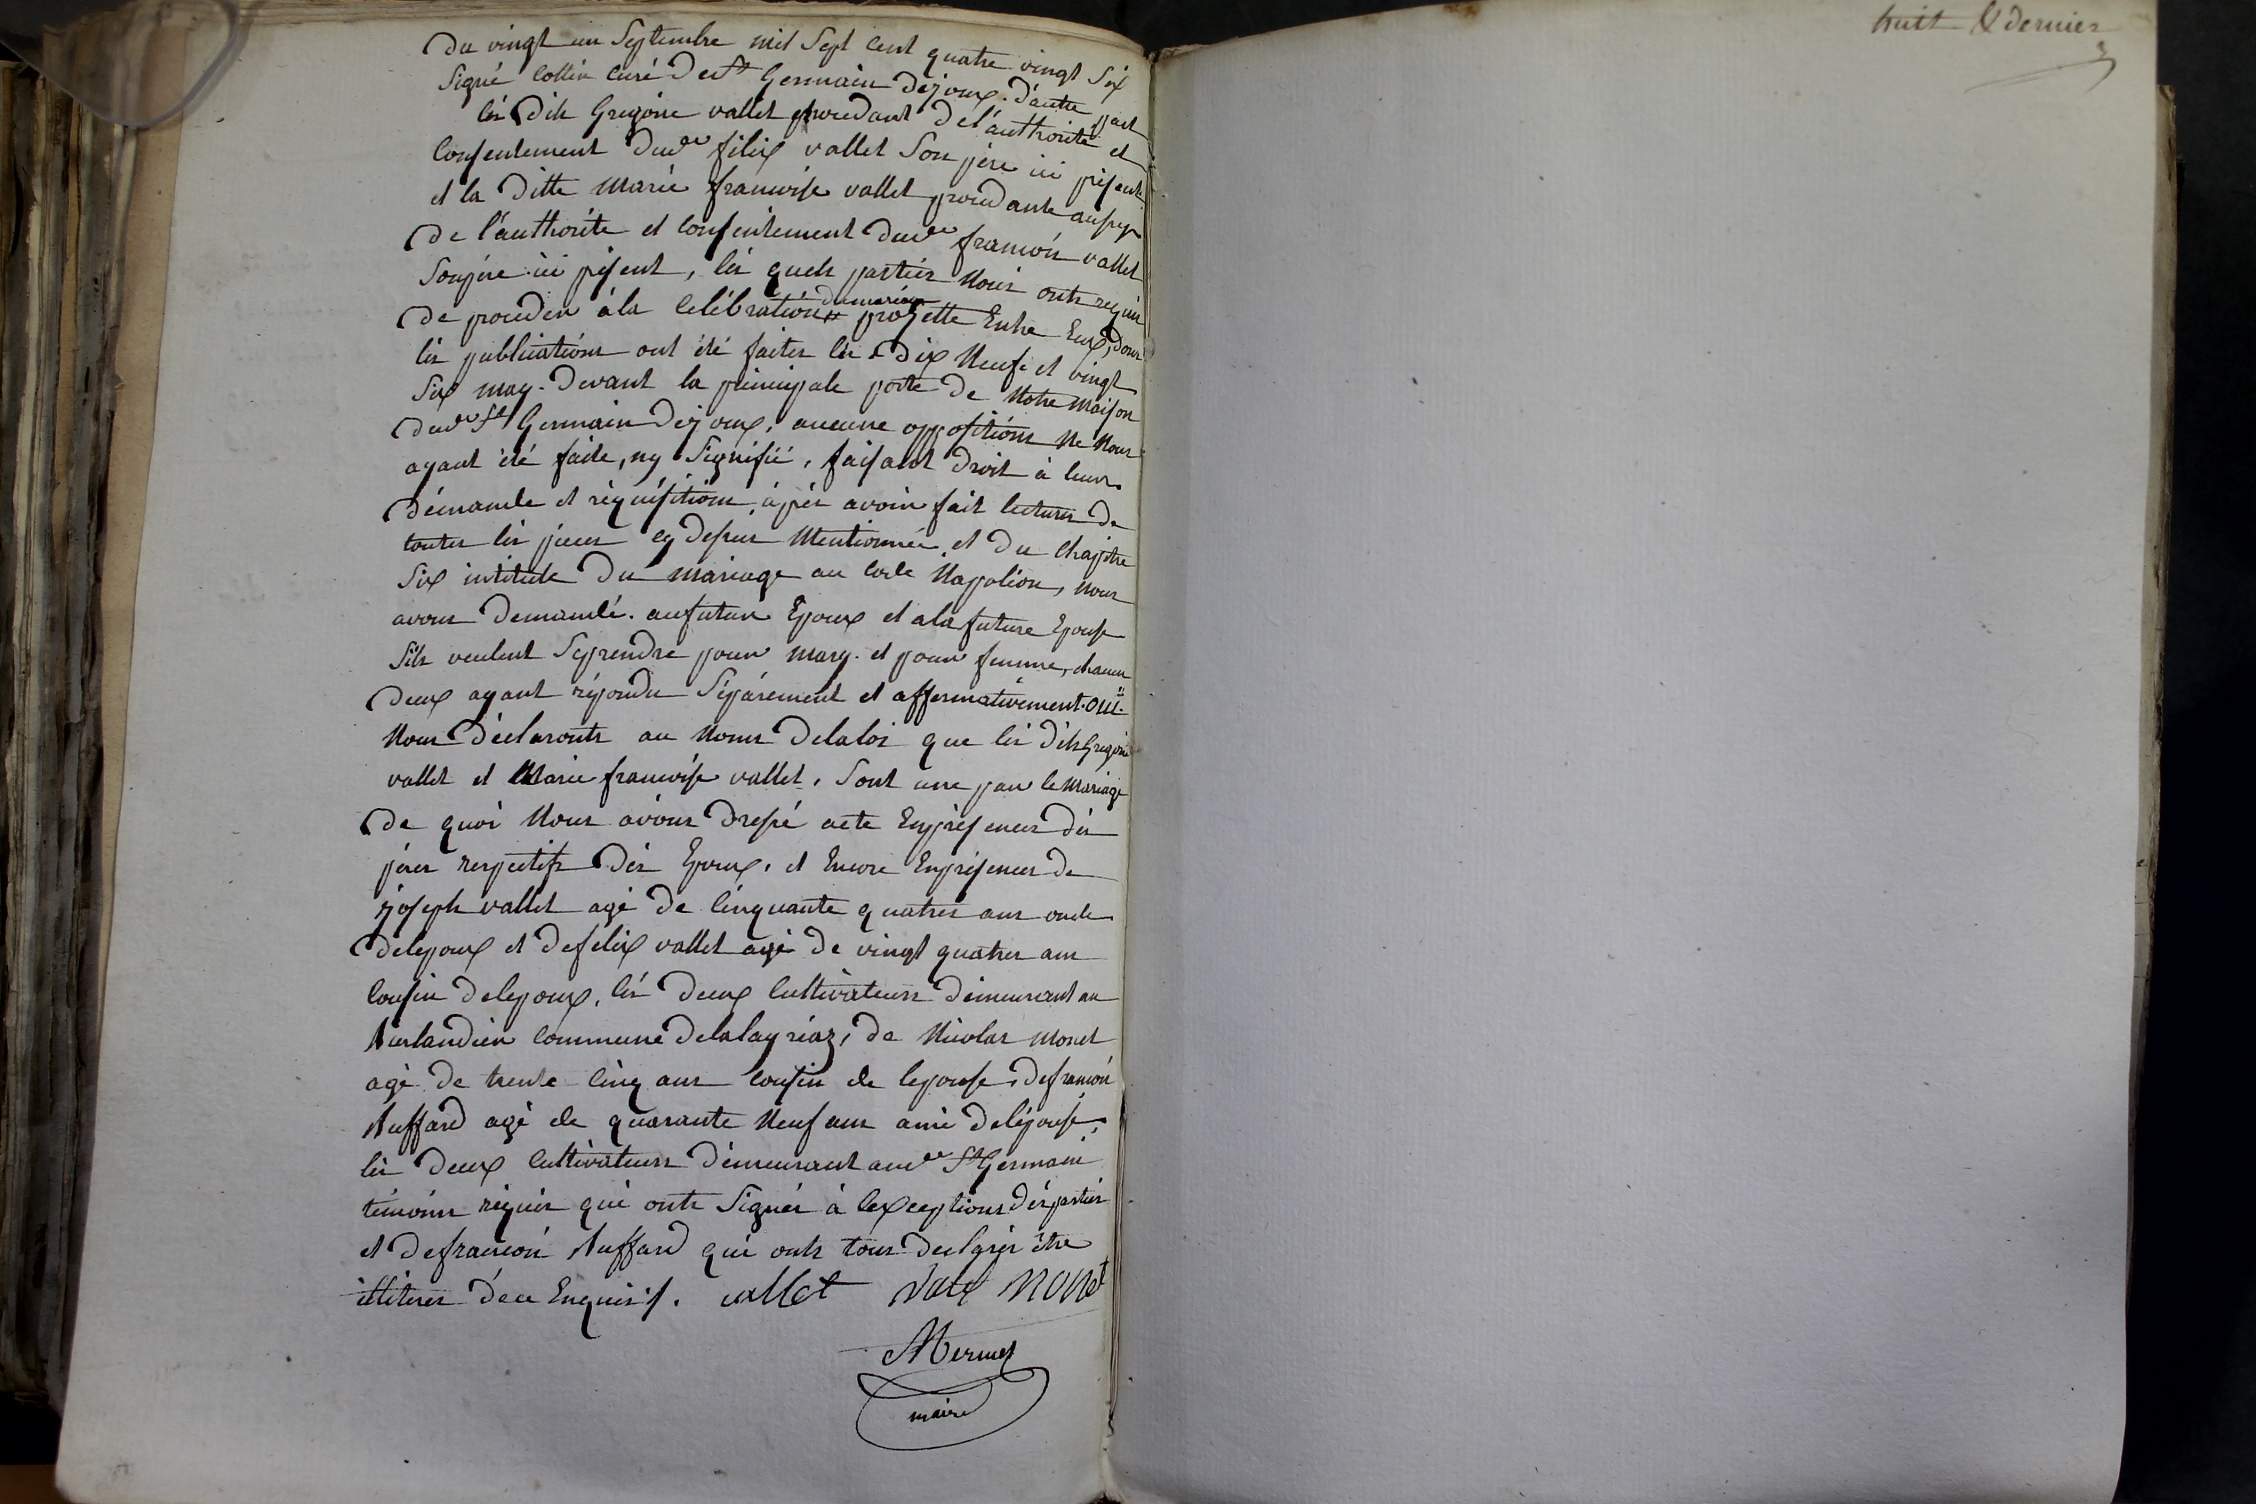 Du vingt un Septembre mil Sept Cent quatre vingt Six
Signé Collin Curé De St Germain Dejoux. D'autre part
les Dits Gregoire vallet procedant De l'authorité et
Consentement Dud. felix vallet Son père ici présent.
et la Ditte Marie francoise vallet procedante aussy
De l'authorité et Consentement Dud. francois vallet
Son père ici présent, les quels parties Nous onts requis
De proceder à la Celébration du mariage projetté Entre Eux, dont
les publications ont été faites les Dix Neuf et vingt
Six may. Devant la principale porte De Notre Maison
Dud. St Germain Dejoux, aucune oppositions Ne Nous
ayant été faite, ny Signifié, faisant Droit à leurs
Démande et réquisitions, àprès avoir fait lectures De
toutes les pieces cy Dessus Mentionnée et Du Chapitre
Six intitulé Du Mariage au Code Napoléon, Nous
avons Demandé. au futur Epoux et a la future Epouse
S'ils veulent Se prendre pour Mary. et pour femme, chacun
Deux ayant répondu Séparement et affermativement. oui.
Nous Déclaronts au Noms De la loi que les Dits Gregoire
vallet et Marie francoise vallet, Sont unie par le Mariage
De quoi Nous avons Dressé acte En présences Des
pères respectifs Des Epoux, et Encore En présences De
joseph vallet agé De Cinquante quatres ans oncle
De lepoux et De felix vallet agé De vingt quatres ans
Cousin De lepoux, les Deux Cultivateurs Démeurant au
Burlandier Commune De lalayriaz, De Nicolas Monet
agé De trente Cinq ans Cousin de lepouse, De francois
Buffard agé de quarante Neuf ans ami De lépouse,
les Deux Cultivateurs Démeurant aud. St Germain
témoins réquis qui onts Signés à lexceptions Des parties
et De francois Buffard qui onts tous Declarés être
illitérés De ce Enquis ./. vallet Monet
Mermet
maire
huit & Dernier